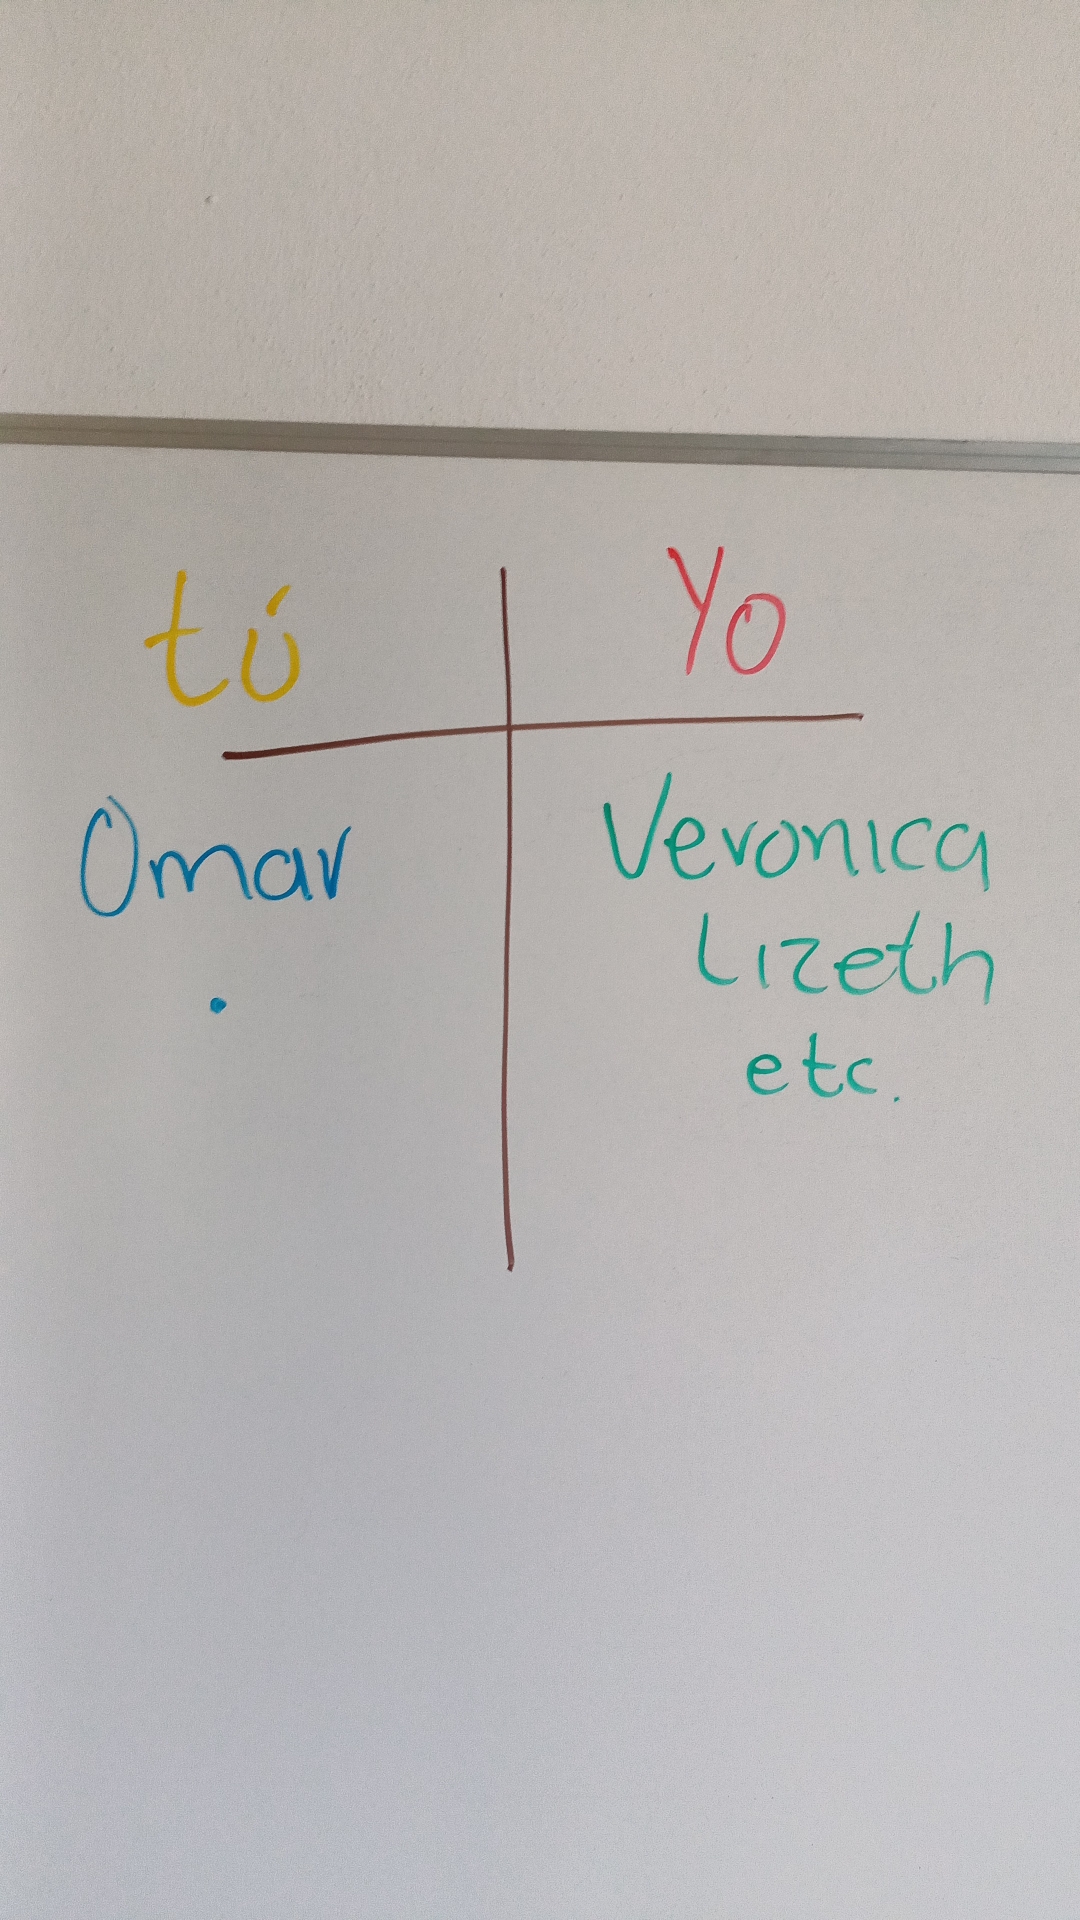 tú Yo
Omar Veronica
. Lizeth
etc.